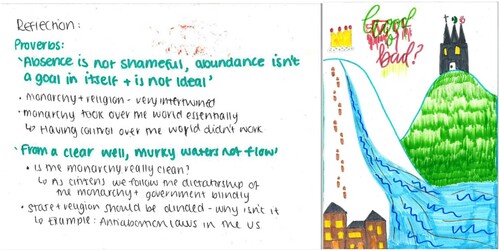 Reflection:
Proverbs:
'Absence is not shameful, abundance isn't
a goal in itself + is not ideal'
• monarchy + religion - very intertwined
• monarchy took over the world essentially
↳ Having control over the world didn't work
'From a clear well, murky waters not flow'
• Is the monarchy really clean?
↳ As citizens we follow the dictatorship of
the monarchy + government blindly
• State + religion should be divided - why isn't it
↳ Example: Antiabortion laws in the US
Good
or
bad?